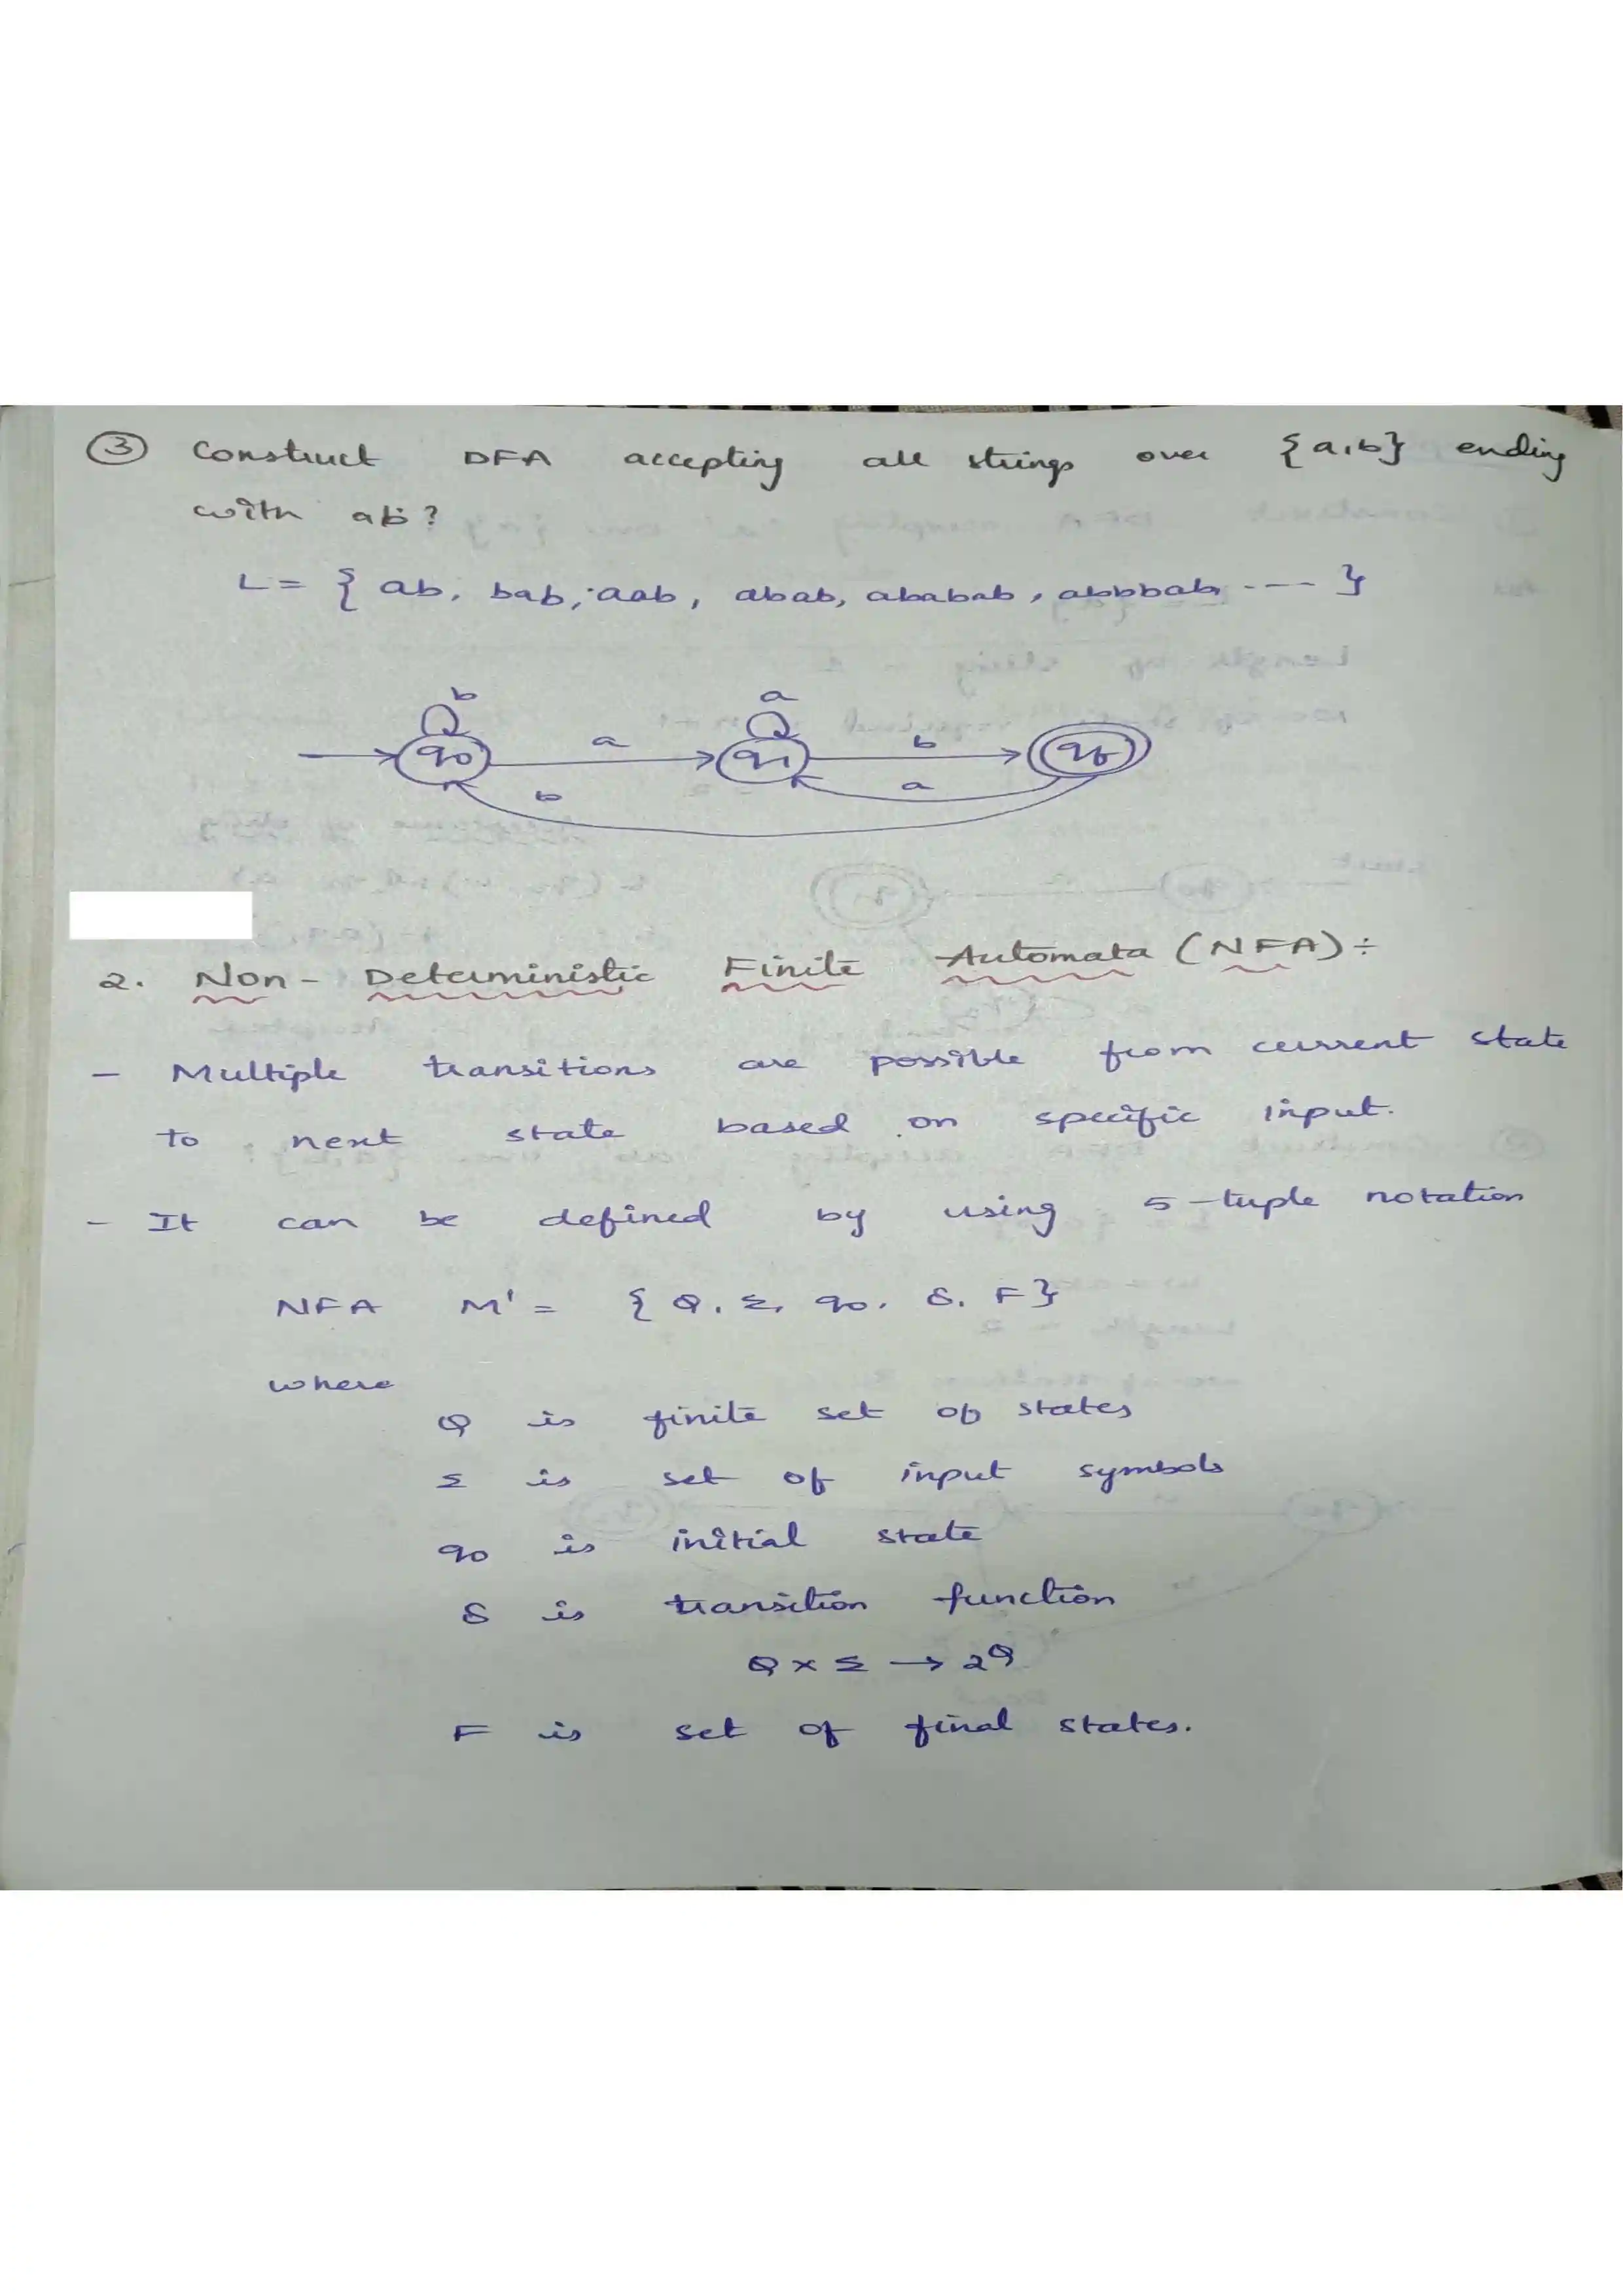 ③ Construct DFA accepting all strings over {a,b} ending
with ab?
L = { ab, bab, aab, abab, ababab, abbbab, ---- }
b a
q0 a q1 b qf
b a
2. Non-Deterministic Finite Automata (NFA):
- Multiple transitions are possible from current state
to next state based on specific input.
- It can be defined by using 5-tuple notation
NFA M' = { Q, Σ, q0, δ, F}
where
Q is finite set of states
Σ is set of input symbols
q0 is initial state
δ is transition function
Q × Σ → 2^Q
F is set of final states.